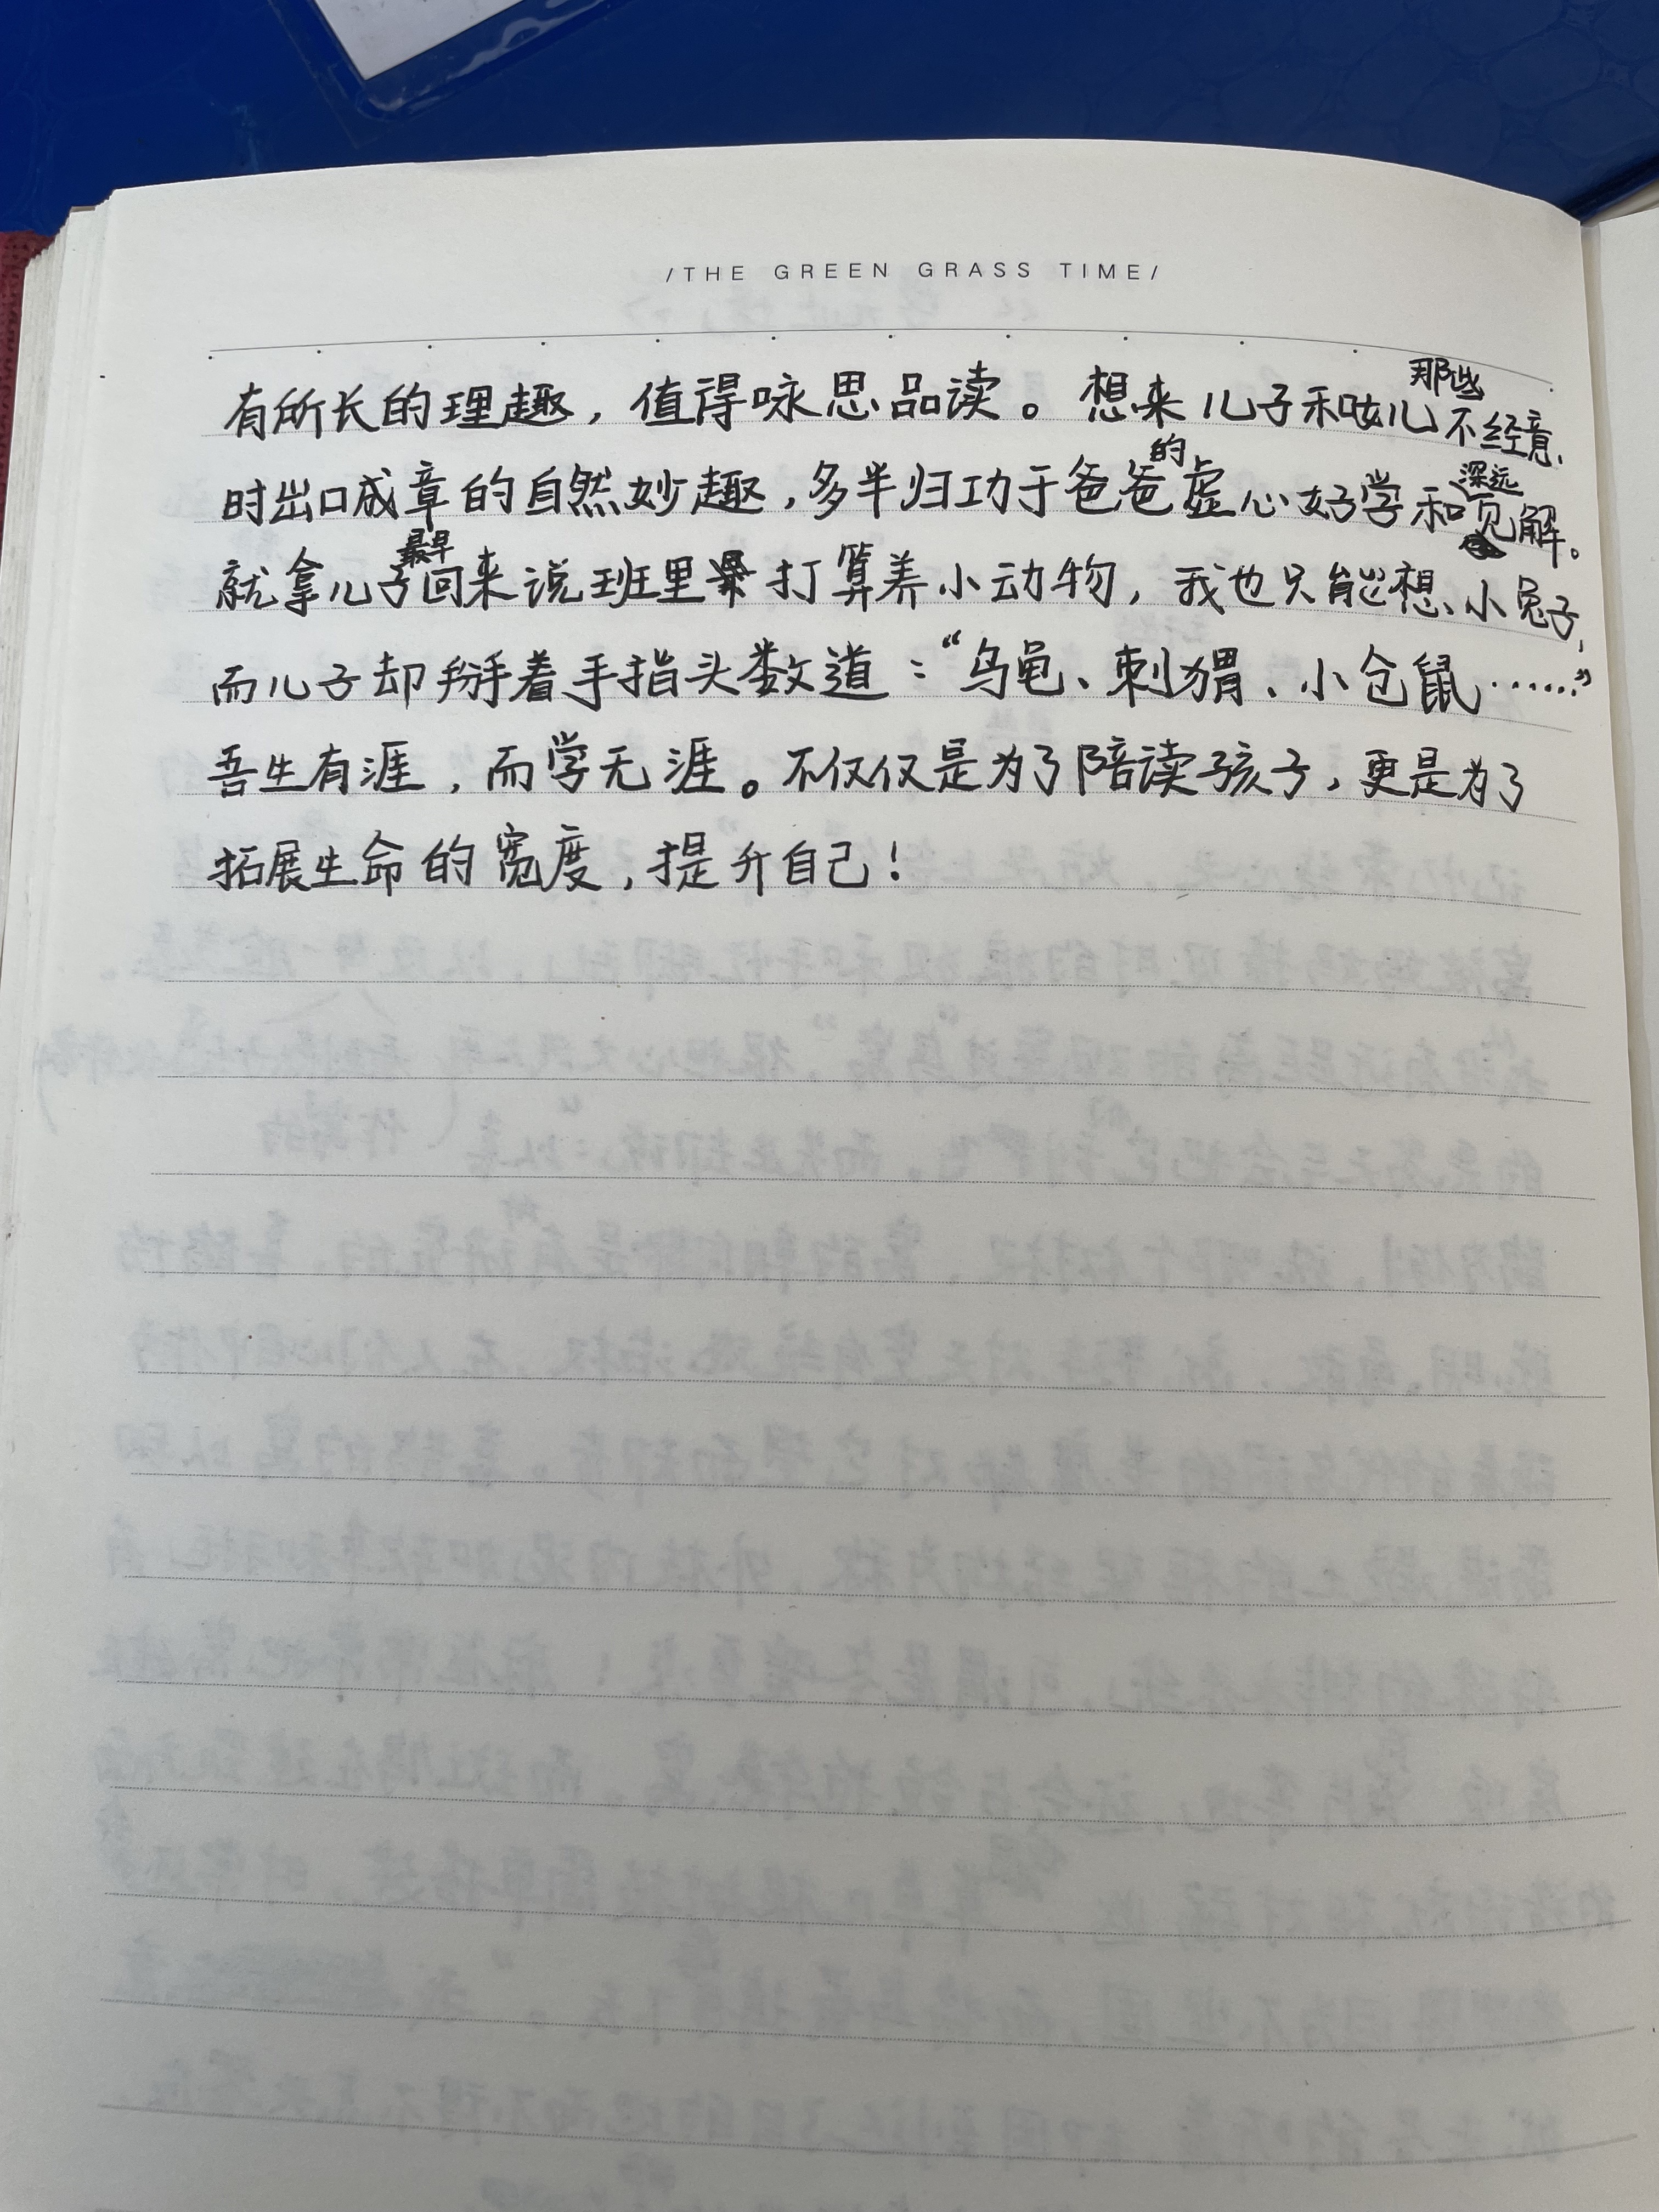 /THE GREEN GRASS TIME/
有所长的理趣，值得咏思品读。想来儿子和女儿那些不经意
时出口成章的自然妙趣，多半归功于爸爸的虚心好学和深远见解。
就拿儿子最早回来说班里打算养小动物，我也只能想小兔子，
而儿子却掰着手指头数道：“乌龟、刺猬、小仓鼠……”
吾生有涯，而学无涯。不仅仅是为了陪读孩子，更是为了
拓展生命的宽度，提升自己！